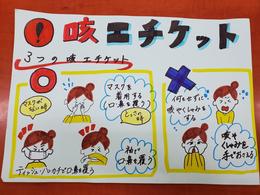 咳エチケット
3つの咳エチケット
マスクがない時
マスクを
着用する
口鼻を覆う
とっさの時
袖で
口鼻を覆う
ティッシュ・ハンカチで口鼻を覆う
何もせずに
咳やくしゃみを
する
咳や
くしゃみを
手でおさえる